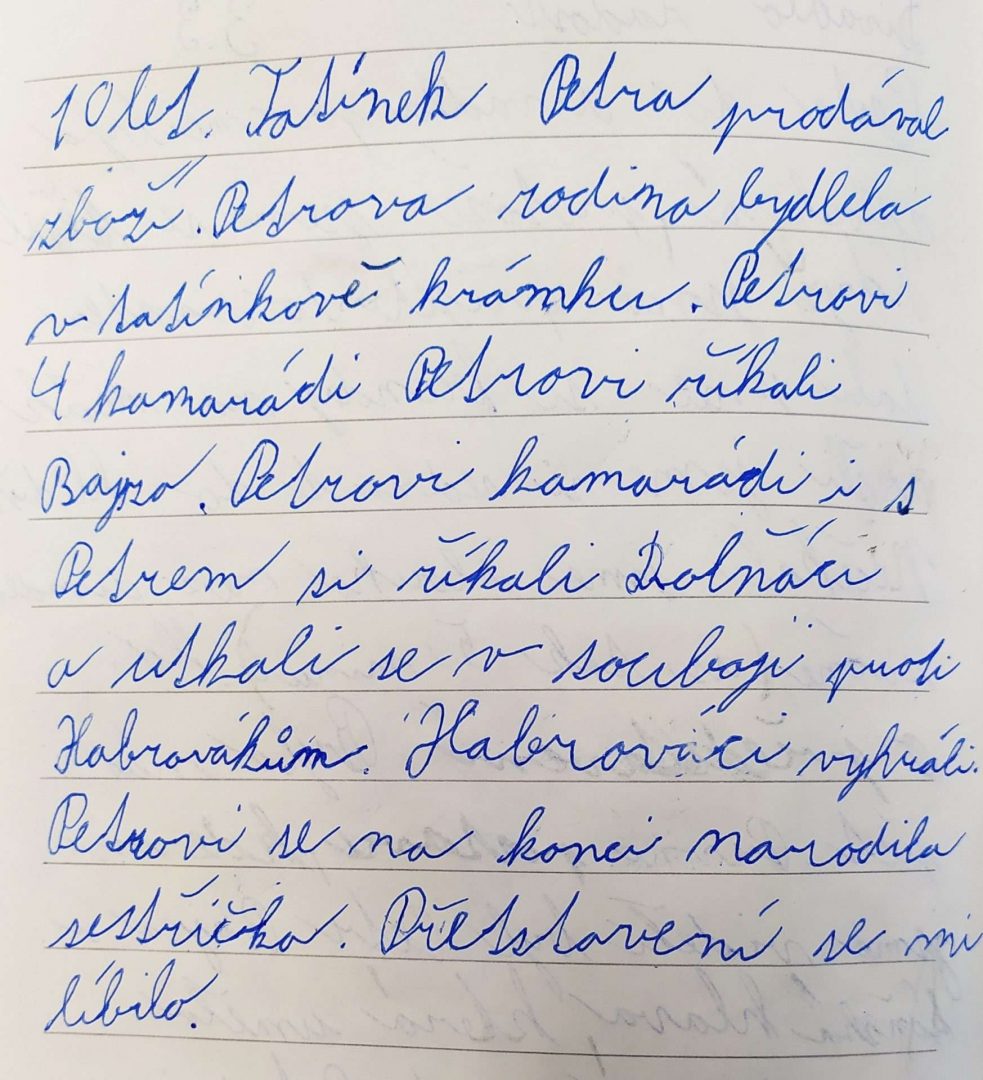 10 let. Tatínek Petra prodával
zboží. Petrova rodina bydlela
v tatínkově krámku. Petrovi
4 kamarádi Petrovi říkali
Bajza. Petrovi kamarádi i s
Petrem si říkali Dolňáci
a utkali se v souboji proti
Habrovákům. Habrováci vyhráli.
Petrovi se na konci narodila
sestřička. Přetstavení se mi
líbilo.